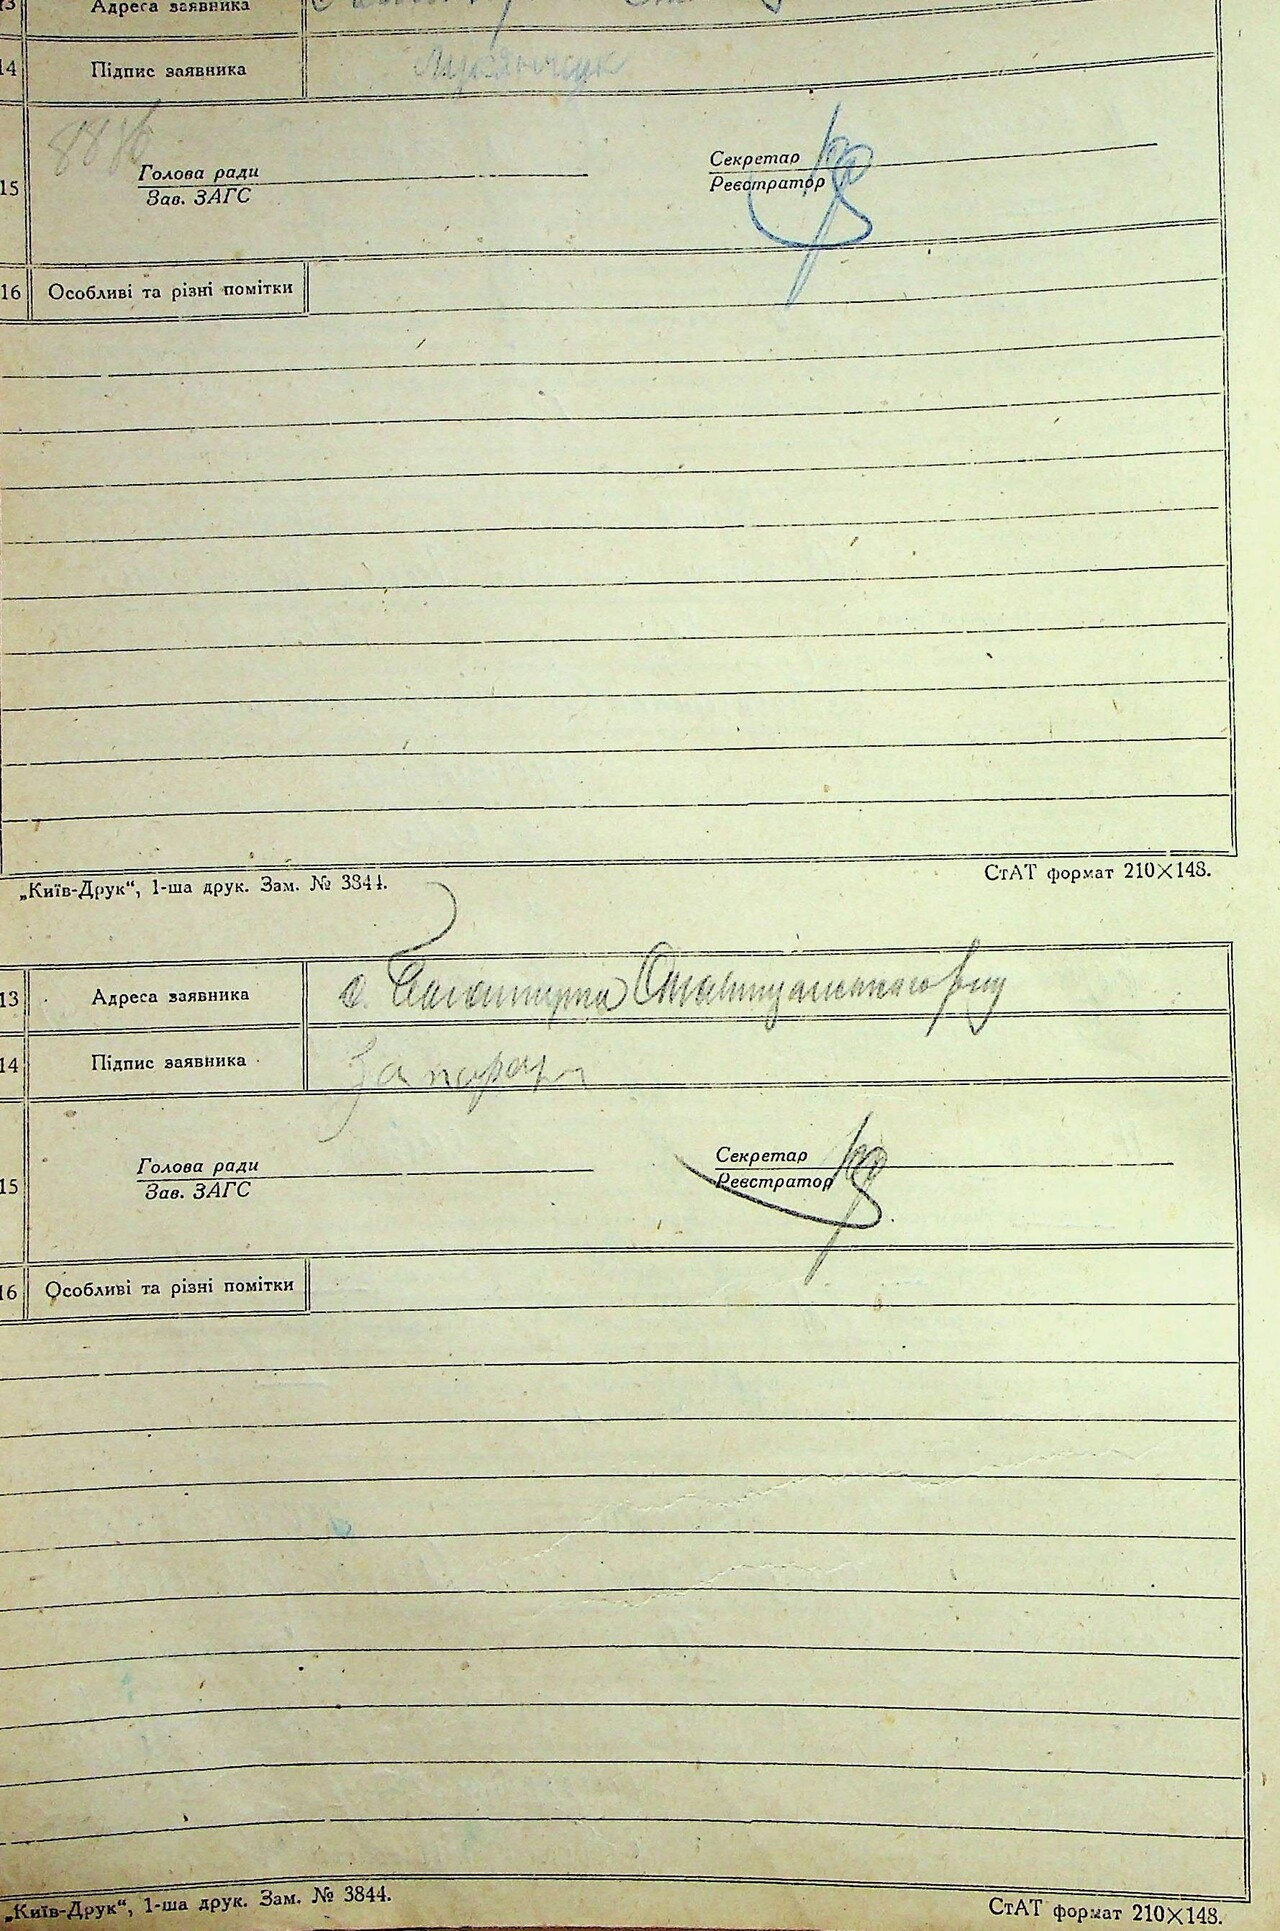 13 Адреса заявника
14 Підпис заявника Лук'янчук
8886
15 Голова ради Секретар
Зав. ЗАГС Реєстратор
16 Особливі та різні помітки
„Київ-Друк“, 1-ша друк. Зам. № 3844. СтАТ формат 210×148.
13 Адреса заявника с.
14 Підпис заявника
15 Голова ради Секретар
Зав. ЗАГС Реєстратор
16 Особливі та різні помітки
„Київ-Друк“, 1-ша друк. Зам. № 3844. СтАТ формат 210×148.